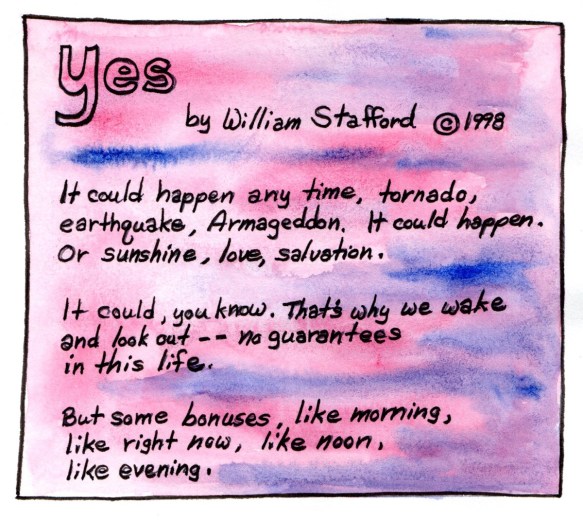 Yes
by William Stafford © 1998
It could happen any time, tornado,
earthquake, Armageddon. It could happen.
Or sunshine, love, salvation.
It could, you know. That's why we wake
and look out -- no guarantees
in this life.
But some bonuses, like morning,
like right now, like noon,
like evening.